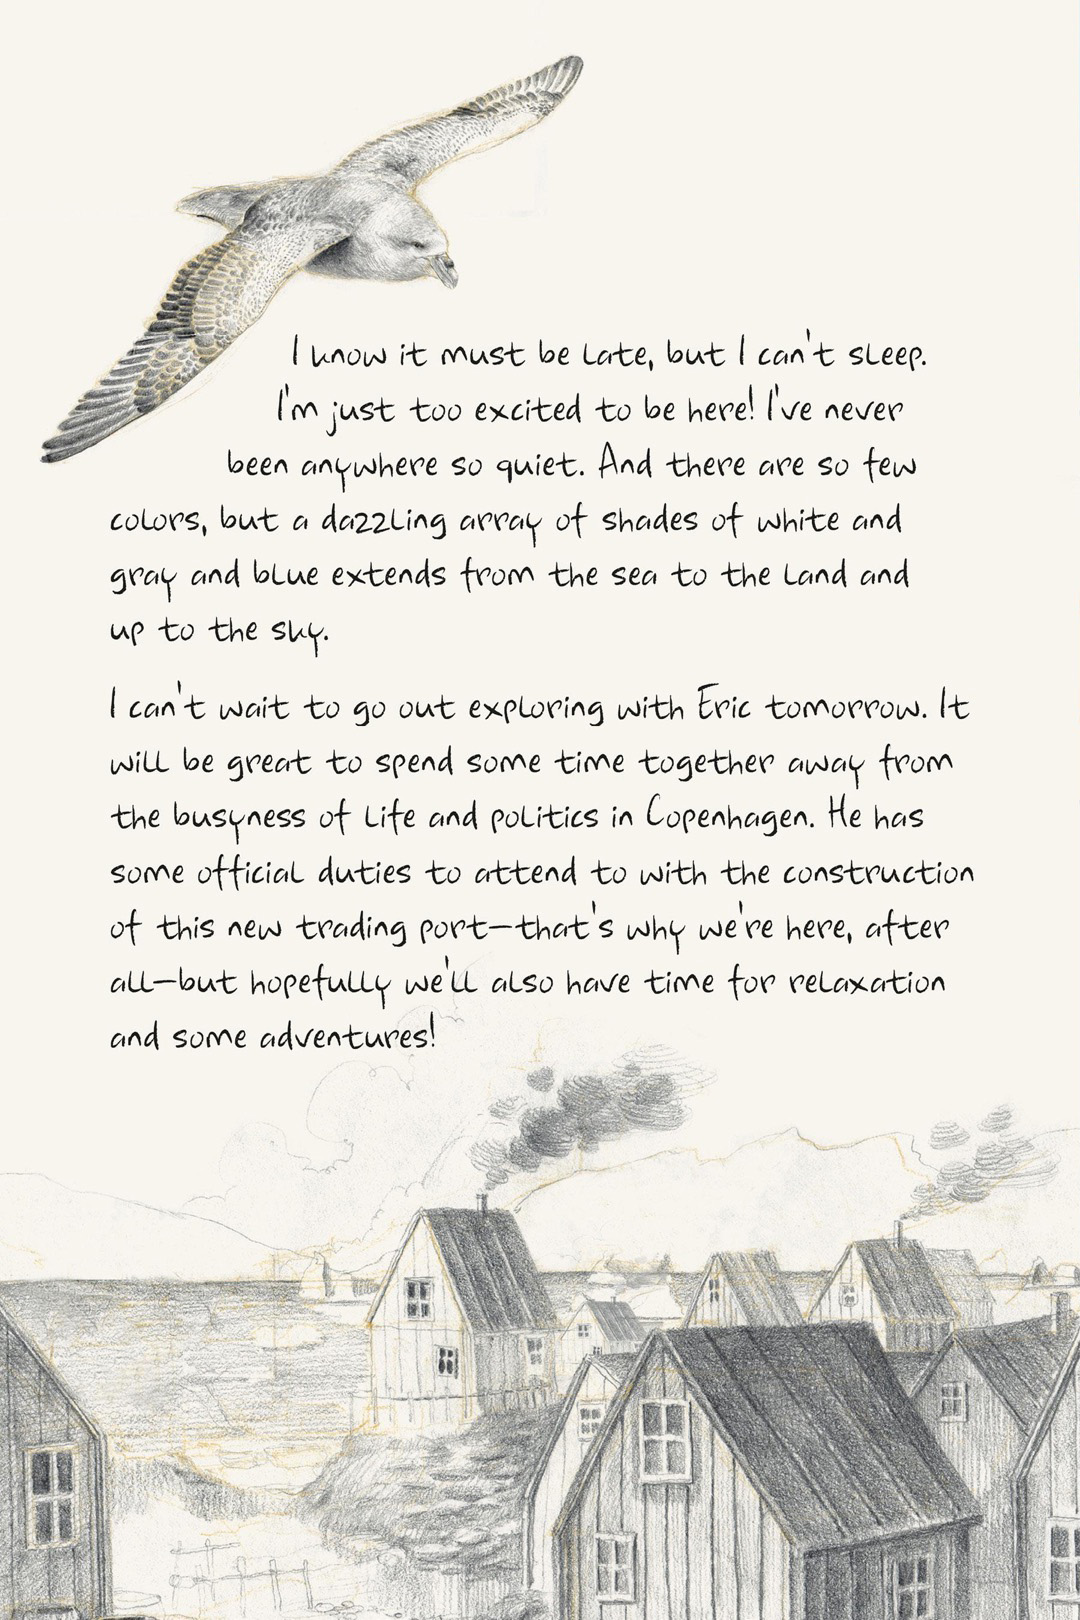 I know it must be late, but I can't sleep.
I'm just too excited to be here! I've never
been anywhere so quiet. And there are so few
colors, but a dazzling array of shades of white and
gray and blue extends from the sea to the land and
up to the sky.
I can't wait to go out exploring with Eric tomorrow. It
will be great to spend some time together away from
the busyness of life and politics in Copenhagen. He has
some official duties to attend to with the construction
of this new trading port—that's why we're here, after
all—but hopefully we'll also have time for relaxation
and some adventures!